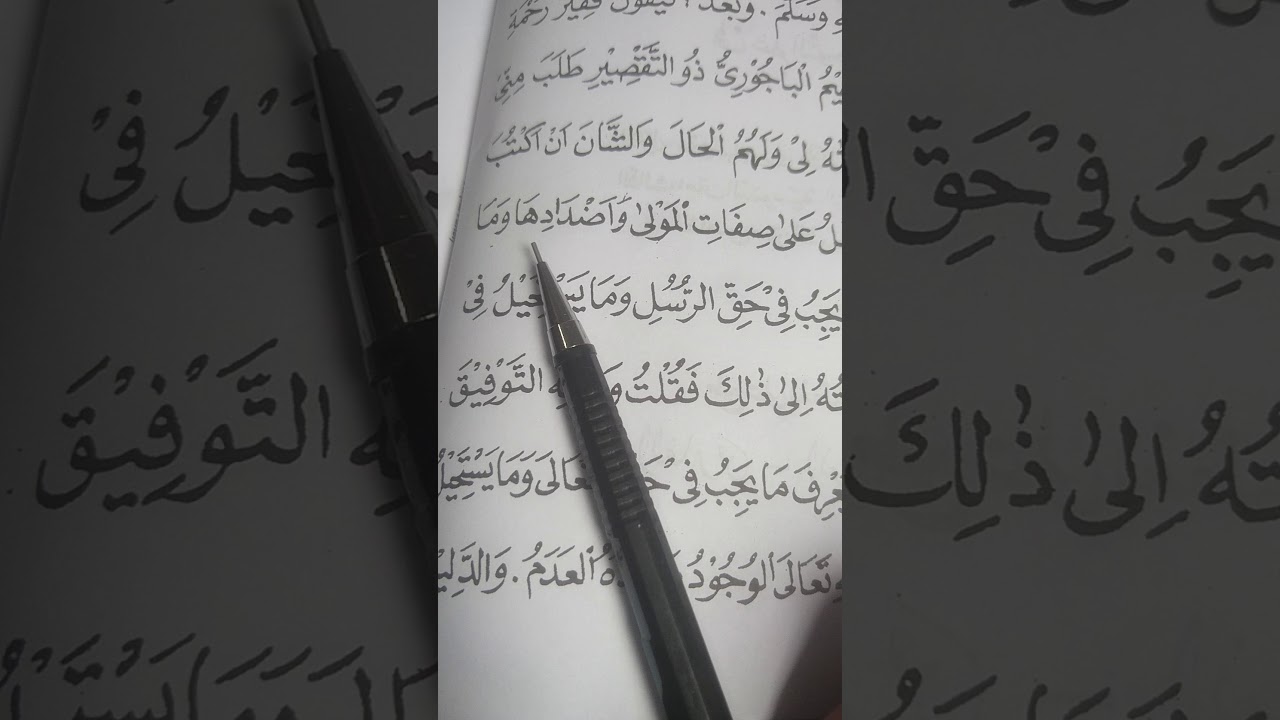 وَسَلَّمَ . وَبَعْدُ فَيَقُوْلُ فَقِيْرُ رَحْمَةِ
الْبَاجُوْرِيُّ ذُو التَّقْصِيْرِ طَلَبَ مِنِّيْ
لِيْ وَلَهُمُ الْحَالَ وَالشَّانَ اَنْ اَكْتُبَ
عَلٰى صِفَاتِ الْمَوْلٰى وَاَضْدَادِهَا وَمَا
يَجِبُ فِيْ حَقِّ الرُّسُلِ وَمَا يَسْتَحِيْلُ فِيْ
اِلٰى ذٰلِكَ فَقُلْتُ التَّوْفِيْقَ
مَا يَجِبُ فِيْ تَعَالَى وَمَا يَسْتَحِيْلُ
وَتَعَالَى الْوُجُوْدُ الْعَدَمُ . وَالدَّلِيْ